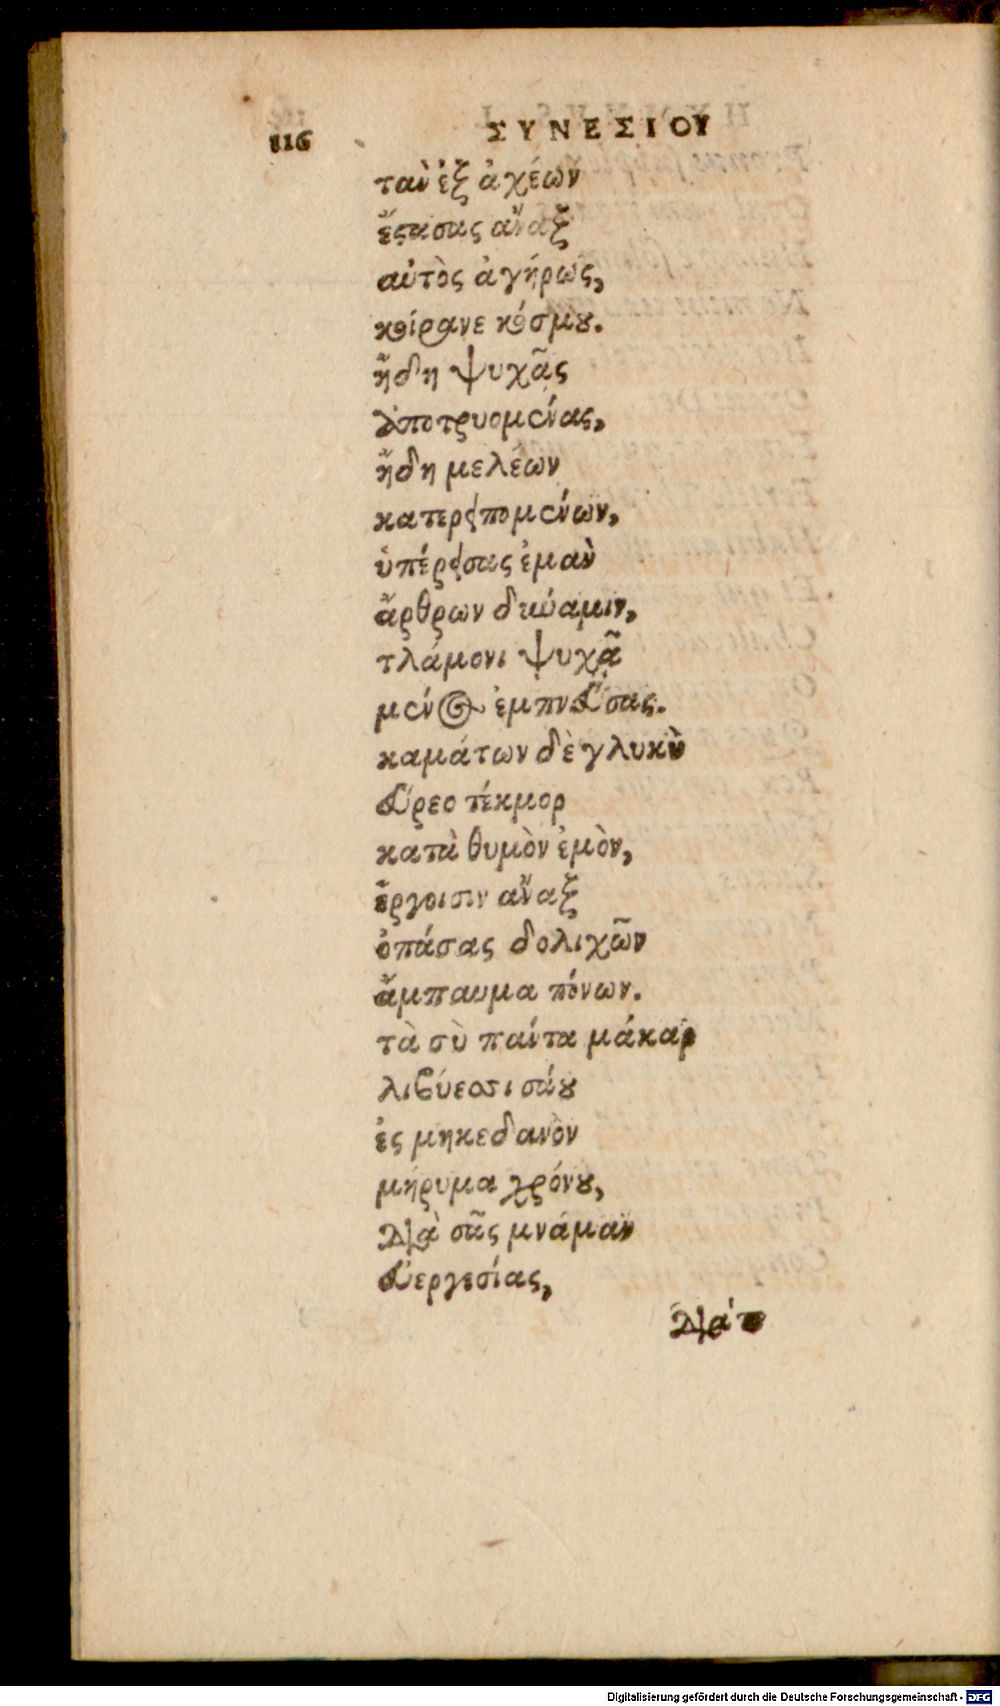 116 ΣΥΝΕΣΙΟΥ
τὰν ἐξ ἀχέων
ἔϛασας ἄναξ
αὐτὸς ἀγήρως,
κοίρανε κόσμȣ.
ἤδη ψυχᾶς
ἀποτρυομένας,
ἤδη μελέων
κατερειπομένων,
ὑπέρεισας ἐμὰν
ἄρθρων δύναμιν,
τλάμονι ψυχᾷ
μένος ἐμπνεύσας.
καμάτων δὲ γλυκὺ
εὕρεο τέκμορ
κατὰ θυμὸν ἐμὸν,
ἔργοισιν ἄναξ
ὀπάσας δολιχῶν
ἄμπαυμα πόνων.
τὰ σὺ πάντα μάκαρ
λιβύεσσι σάȣ
ἐς μηκεδανὸν
μήρυμα χρόνȣ,
διὰ σᾶς μνάμαν
εὐεργεσίας,
διά τε
Digitalisierung gefördert durch die Deutsche Forschungsgemeinschaft - DFG